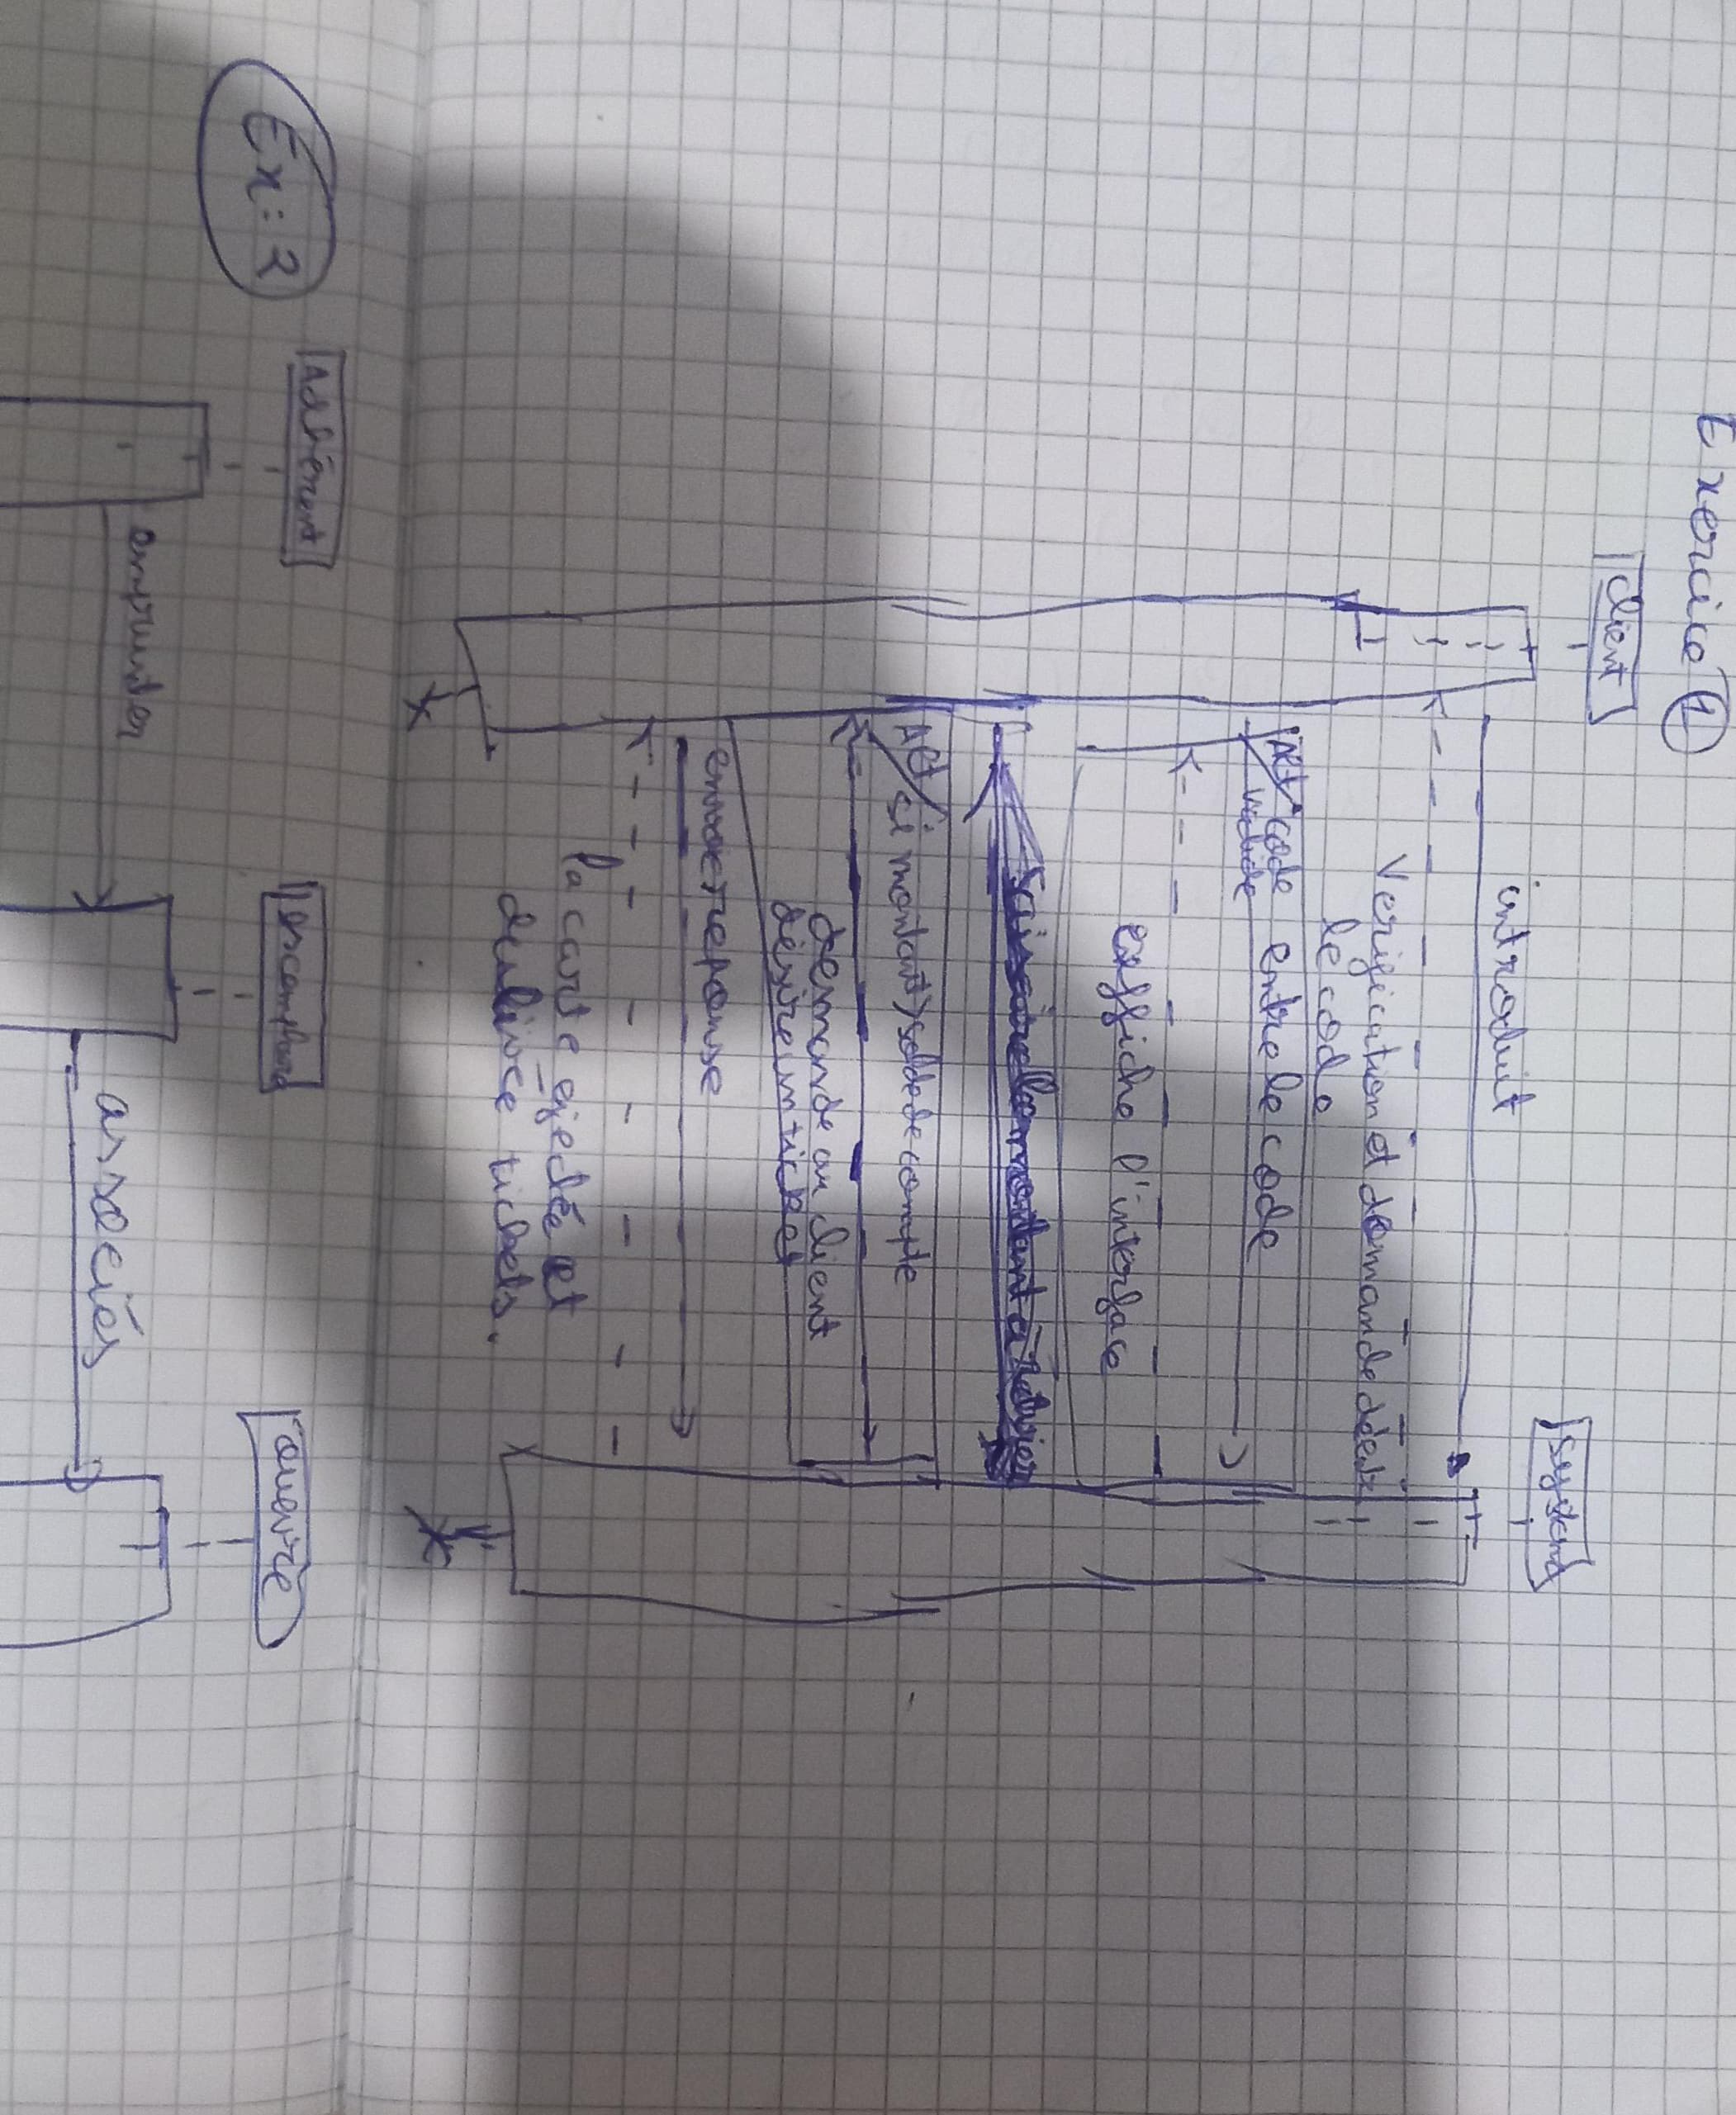 Exercice 1
client
system
introduit
Verification et demande de
le code
Alt code entre le code
valide
efffiche l'interface
Saissare le montant à retirer
Alt si montant > solde de compte
demande au client
désire un ticket
envoie reponse
la carte ejectée et
delivre tickets.
Ex: 2
Adhérent
œuvre
emprunter
associés